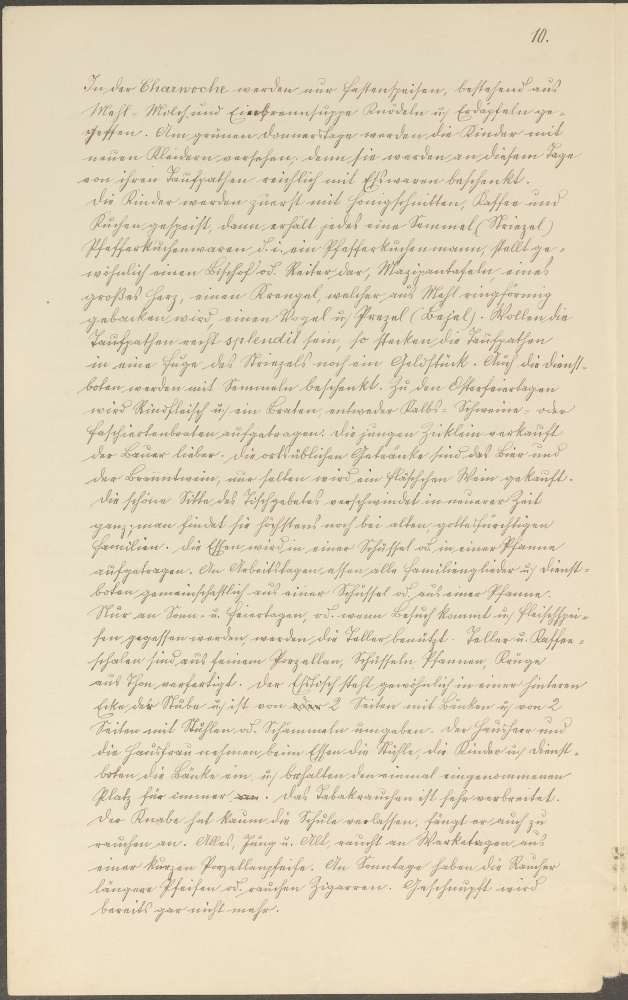 10.
In der Charwoche werden nur Fastenspeisen, bestehend aus
Mehl- Milch und Einbrennsuppe Knödeln u. Erdäpfeln ge-
gessen. Am grünen Donnerstage werden die Kinder mit
neuen Kleidern versehen, denn sie werden an diesem Tage
von ihren Taufpathen reichlich mit Esswaren beschenkt.
Die Kinder werden zuerst mit Honigschnitten, Kaffee und
Kuchen gespeist, dann erhält jedes eine Semmel (Striezel)
Pfefferkuchenwaren, d. i. ein Pfefferkuchenmann, stellt ge-
wöhnlich einen Bischof od. Reiter dar, Mazipantafeln eines
großes Herz, einen Krengel, welcher aus Mehl ringförmig
gebacken wird einen Vogel u. Prezel (Bejel). Wollen die
Taufpathen recht splendit sein, so stecken die Taufpathen
in eine Fuge des Striezels noch ein Geldstück. Auch die Dienst-
boten werden mit Semmeln beschenkt. Zu den Osterfeiertagen
wird Rindfleisch u. ein Braten, entweder Kalbs- Schweine- oder
Faschiertenbraten aufgetragen. Die jungen Zicklein verkauft
der Bauer lieber. Die ortsüblichen Getränke sind das Bier und
der Branntwein, nur selten wird ein Fläschchen Wein gekauft.
Die schöne Sitte des Tischgebetes verschwindet in neuerer Zeit
ganz; man findet sie höchstens noch bei alten gottesfürchtigen
Familien. Die Essen wird in einer Schüssel od. in einer Pfanne
aufgetragen. An Arbeitstagen essen alle Familienglieder u. Dienst-
boten gemeinschaftlich aus einer Schüssel od. aus einer Pfanne.
Nur an Sonn- u. Feiertagen, od. wenn Besuch kommt u. Fleischspei-
sen gegessen werden, werden die Teller benützt. Teller u. Kaffee-
schalen sind aus feinem Porzellan, Schüsseln, Pfannen, Krüge
aus Thon verfertigt. Der Esstisch steht gewöhnlich in einer hinteren
Ecke der Stube u. ist von 2 Seiten mit Bänken u. von 2
Seiten mit Stühlen od. Schammeln umgeben. Der Hausherr und
die Hausfrau nehmen beim Essen die Stühle, die Kinder u. Dienst-
boten die Bänke ein u. behalten den einmal eingenommenen
Platz für immer. Das Tabakrauchen ist sehr verbreitet.
Der Knabe hat kaum die Schule verlassen, fängt er auch zu
rauchen an. Alles, Jung u. Alt, raucht an Werketagen aus
einer kurzen Porzellanpfeife. An Sonntage haben die Raucher
längere Pfeifen od. rauchen Zigarren. Geschnupft wird
bereits gar nicht mehr.